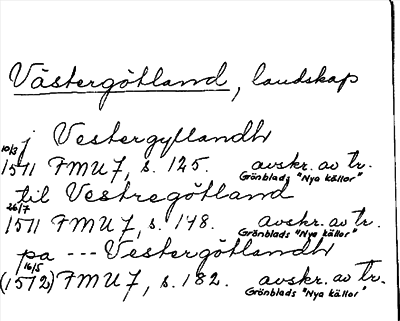 Västergötland, landskap
j Vestergyllandh
10/3 1511 FMU 7, s. 125. avskr. av tr.
Grönblads "Nya källor"
til Vestregötland
26/7 1511 FMU 7, s. 148. avskr. av tr.
Grönblads "Nya källor"
pa --- Vestergötlandh
16/5 (1512) FMU 7, s. 182. avskr. av tr.
Grönblads "Nya källor"